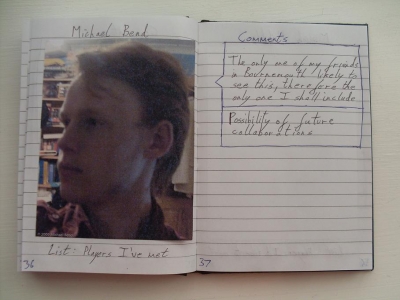 Michael Bead
List - Players I've met
36
Comments
The only one of my friends
in Bournemouth likely to
see this, therefore the
only one I shall include
Possibility of future
collaborations
37